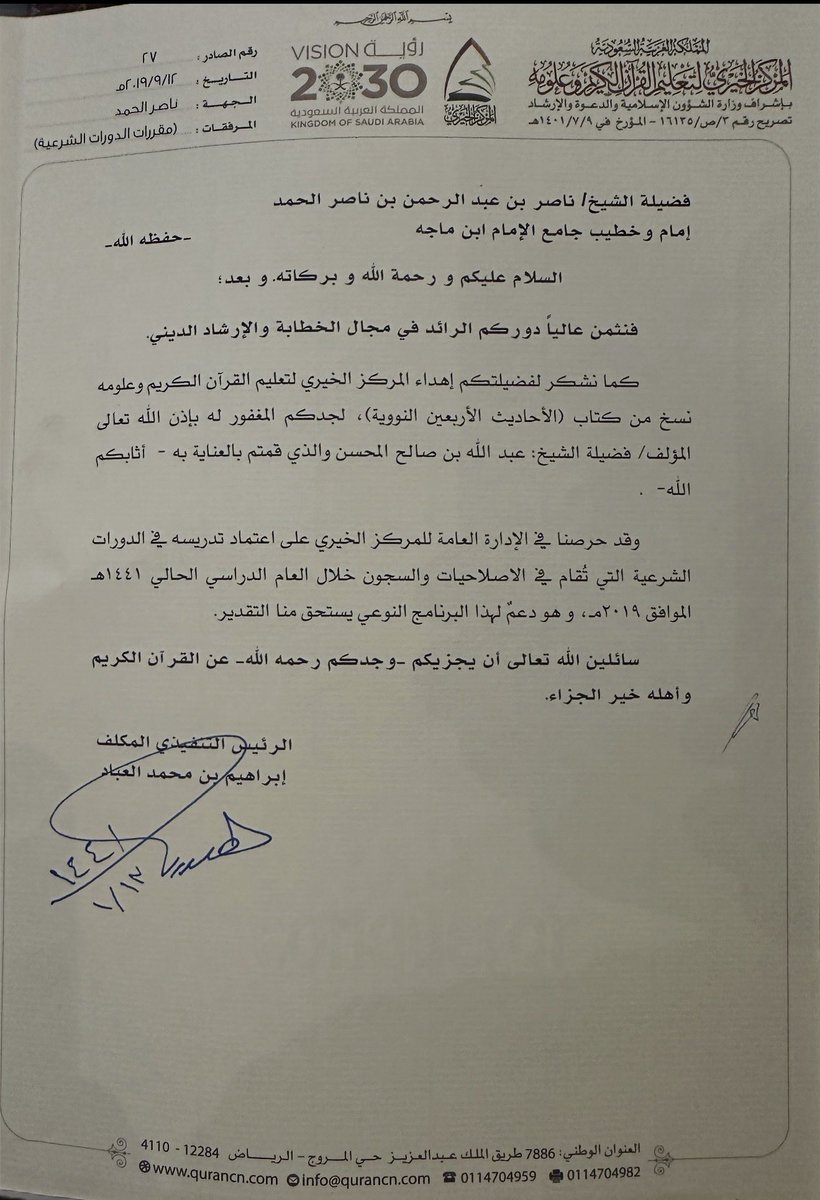 بسم الله الرحمن الرحيم
المملكة العربية السعودية
المركز الخيري لتعليم القرآن الكريم وعلومه
بإشراف وزارة الشؤون الإسلامية والدعوة والإرشاد
تصريح رقم ٣/ص/١٦١٣٥ - المؤرخ في ١٤٠١/٧/٩هـ
المركز الخيري
VISION رؤية
2030
المملكة العربية السعودية
KINGDOM OF SAUDI ARABIA
رقم الصادر : ٢٧
التاريخ : ٢٠١٩/٩/١٢مـ
الجهة : ناصر الحمد
المرفقات : (مقررات الدورات الشرعية)
فضيلة الشيخ/ ناصر بن عبد الرحمن بن ناصر الحمد
إمام وخطيب جامع الإمام ابن ماجه -حفظه الله-
السلام عليكم و رحمة الله و بركاته. و بعد؛
فنثمن عالياً دوركم الرائد في مجال الخطابة والإرشاد الديني.
كما نشكر لفضيلتكم إهداء المركز الخيري لتعليم القرآن الكريم وعلومه
نسخ من كتاب (الأحاديث الأربعين النووية)، لجدكم المغفور له بإذن الله تعالى
المؤلف/ فضيلة الشيخ: عبد الله بن صالح المحسن والذي قمتم بالعناية به - أثابكم
الله- .
وقد حرصنا في الإدارة العامة للمركز الخيري على اعتماد تدريسه في الدورات
الشرعية التي تُقام في الاصلاحيات والسجون خلال العام الدراسي الحالي ١٤٤١هـ
الموافق ٢٠١٩مـ، و هو دعمٌ لهذا البرنامج النوعي يستحق منا التقدير.
سائلين الله تعالى أن يجزيكم -وجدكم رحمه الله- عن القرآن الكريم
وأهله خير الجزاء.
الرئيس التنفيذي المكلف
إبراهيم بن محمد العباد
١٤٤١
١/١٣
العنوان الوطني: 7886 طريق الملك عبدالعزيز حي المروج - الرياض 12284 - 4110
www.qurancn.com info@qurancn.com 0114704959 0114704982